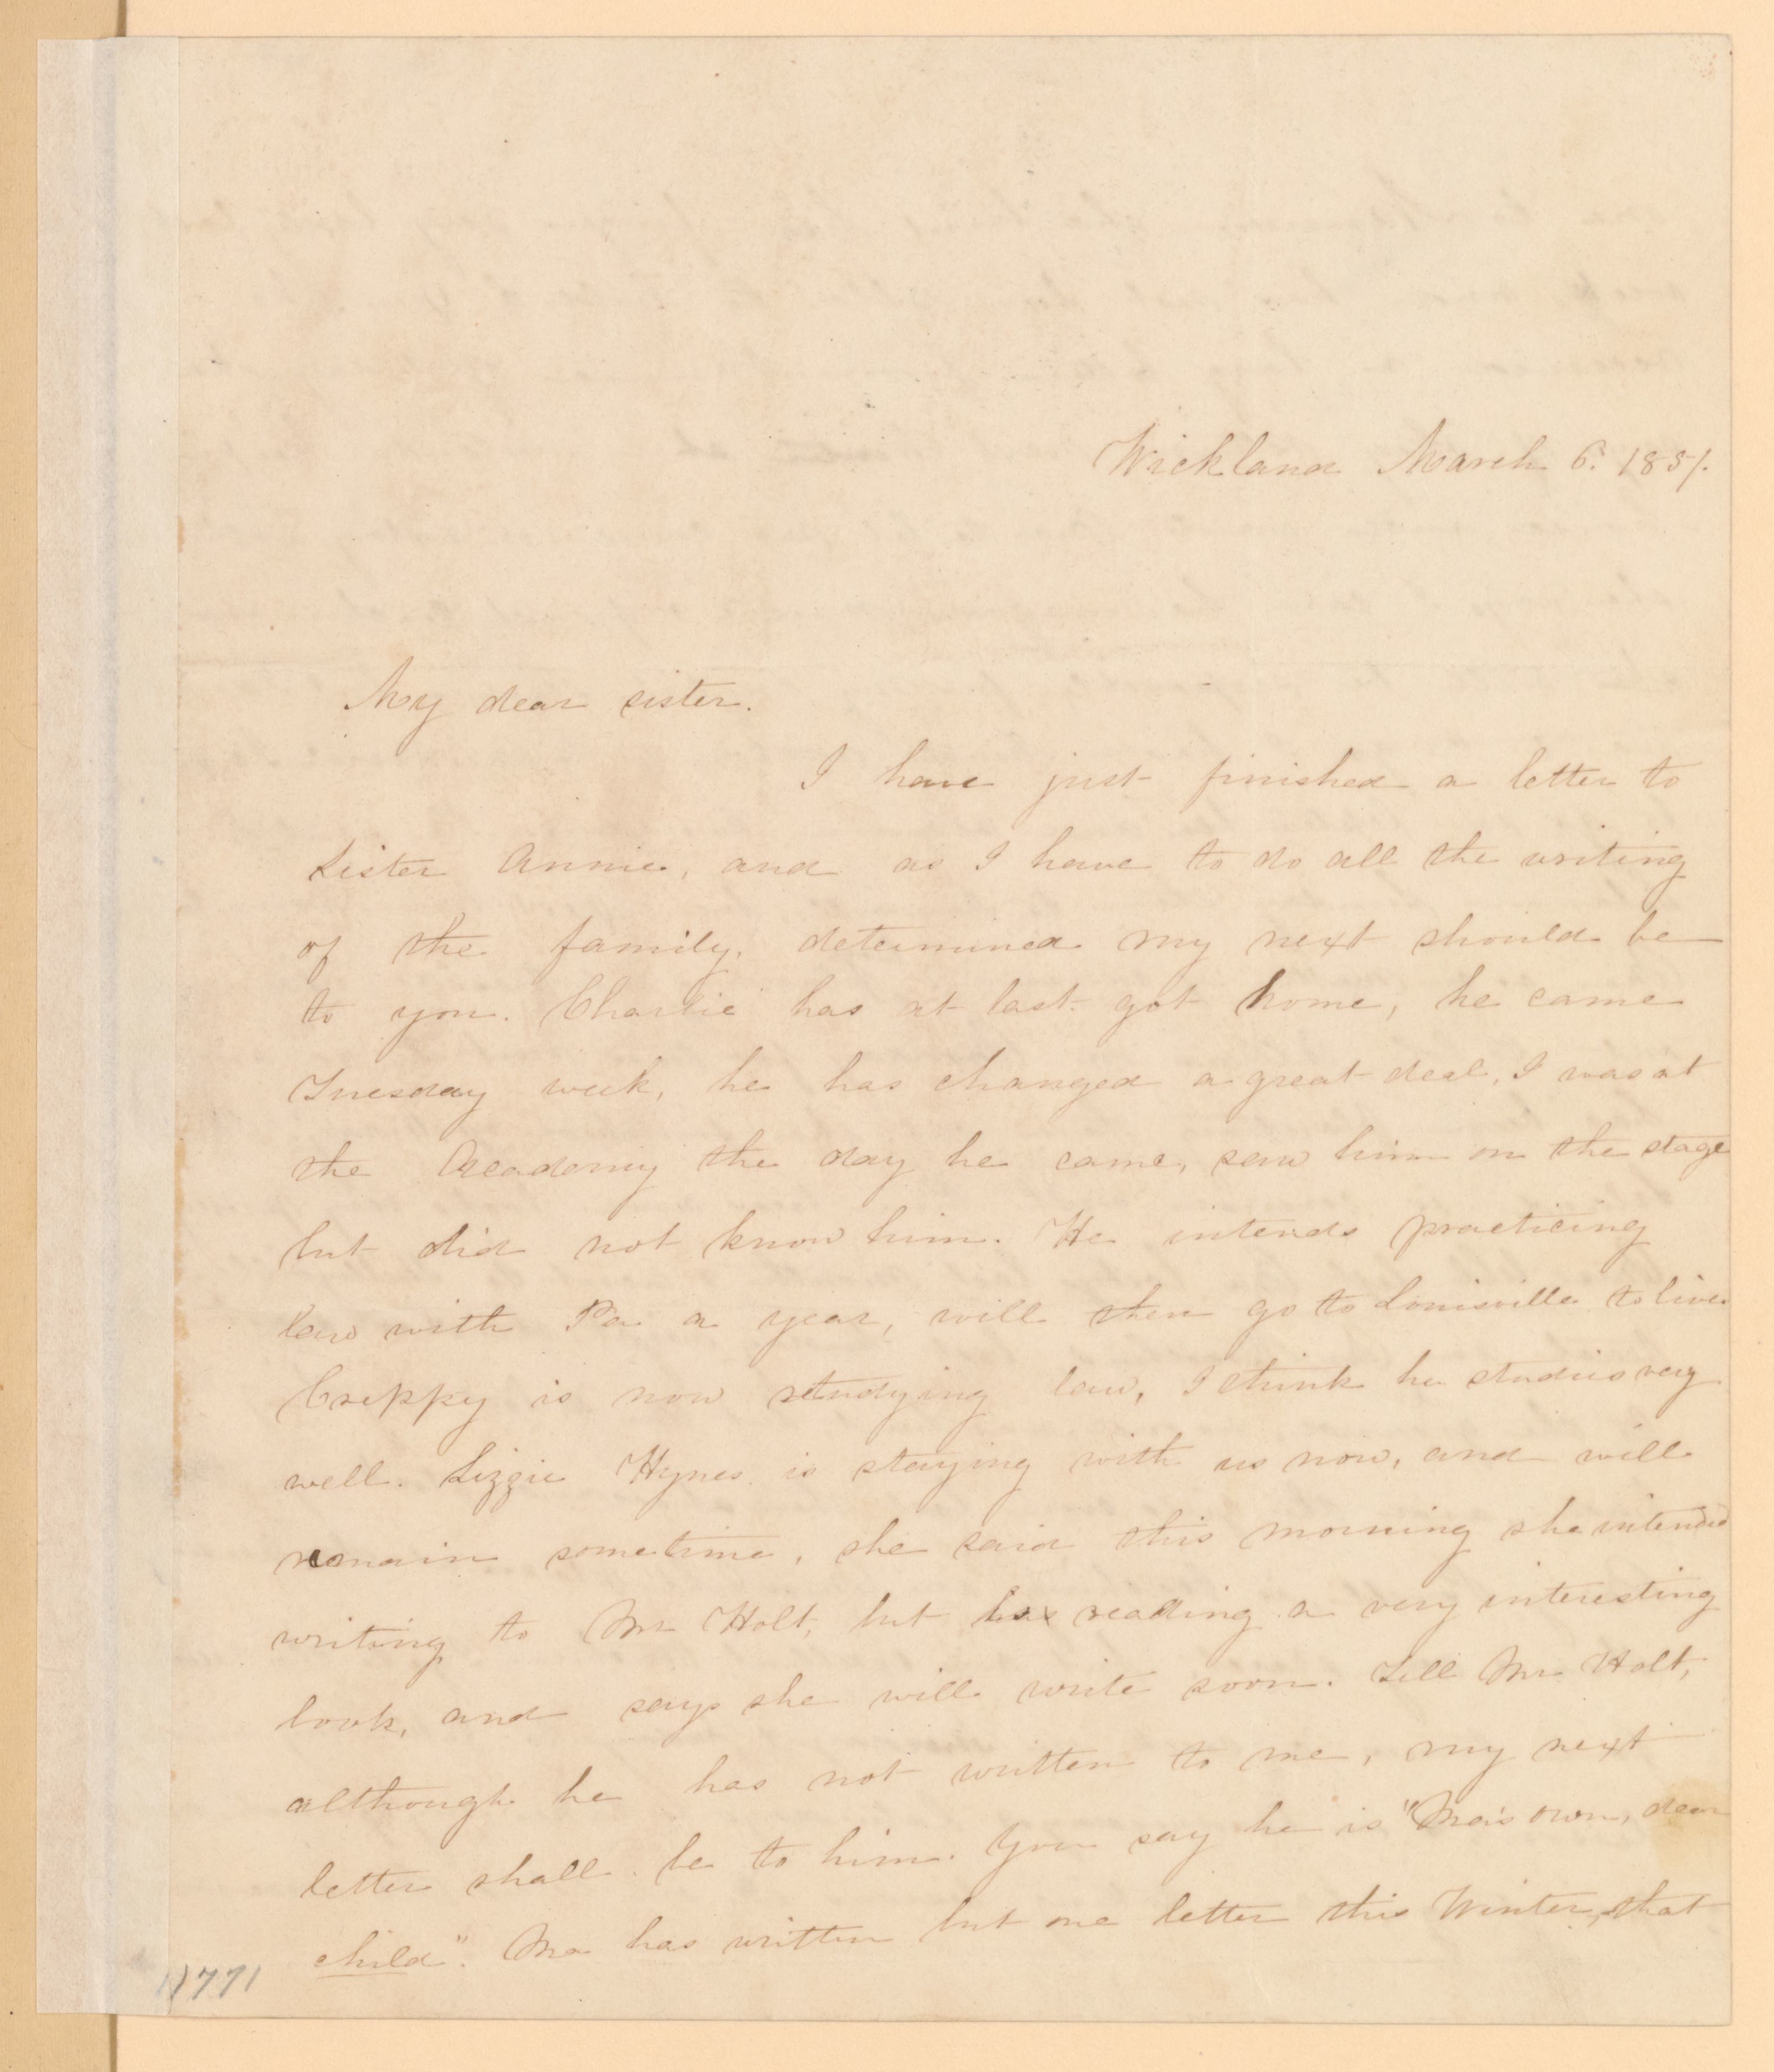 Wickland March 6. 1851.
My dear sister.
I have just finished a letter to
Sister Annie, and as I have to do all the writing
of the family, determined my next should be
to you. Charlie has at last got home, he came
Tuesday week, he has changed a great deal, I was at
the Academy the day he came, saw him on the stage
but did not know him. He intends practicing
law with Pa a year, will then go to Louisville to live
Creppy is now studying law, I think he studies very
well. Lizzie Hynes is staying with us now, and will
remain sometime, she said this morning she intended
writing to Mr Holt, but is reading a very interesting
book, and says she will write soon. Tell Mr Holt,
although he has not written to me, my next
letter shall be to him. You say he is "Ma's own, dear
child". Ma has written but one letter this Winter, that
1771